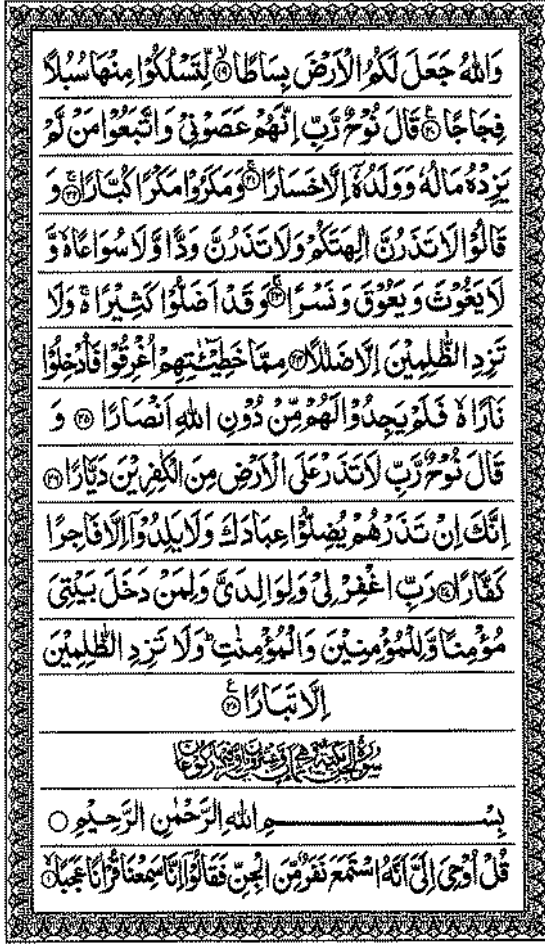 وَاللّٰهُ جَعَلَ لَكُمُ الْاَرْضَ بِسَاطًا ۙ﴿۱۹﴾ لِّتَسْلُكُوْا مِنْهَا سُبُلًا
فِجَاجًا ۠﴿۲۰﴾ قَالَ نُوْحٌ رَّبِّ اِنَّهُمْ عَصَوْنِيْ وَاتَّبَعُوْا مَنْ لَّمْ
يَزِدْهُ مَالُهٗ وَوَلَدُهٗۤ اِلَّا خَسَارًا ۚ﴿۲۱﴾ وَمَكَرُوْا مَكْرًا كُبَّارًا ۚ﴿۲۲﴾ وَ
قَالُوْا لَا تَذَرُنَّ اٰلِهَتَكُمْ وَلَا تَذَرُنَّ وَدًّا وَّلَا سُوَاعًا ۙ وَّ
لَا يَغُوْثَ وَيَعُوْقَ وَنَسْرًا ۚ﴿۲۳﴾ وَقَدْ اَضَلُّوْا كَثِيْرًا ۚ وَلَا
تَزِدِ الظّٰلِمِيْنَ اِلَّا ضَلٰلًا ﴿۲۴﴾ مِمَّا خَطِيْٓـٰٔتِهِمْ اُغْرِقُوْا فَاُدْخِلُوْا
نَارًا ۙ فَلَمْ يَجِدُوْا لَهُمْ مِّنْ دُوْنِ اللّٰهِ اَنْصَارًا ﴿۲۵﴾ وَ
قَالَ نُوْحٌ رَّبِّ لَا تَذَرْ عَلَى الْاَرْضِ مِنَ الْكٰفِرِيْنَ دَيَّارًا ﴿۲۶﴾
اِنَّكَ اِنْ تَذَرْهُمْ يُضِلُّوْا عِبَادَكَ وَلَا يَلِدُوْۤا اِلَّا فَاجِرًا
كَفَّارًا ﴿۲۷﴾ رَبِّ اغْفِرْ لِيْ وَلِوَالِدَيَّ وَلِمَنْ دَخَلَ بَيْتِيَ
مُؤْمِنًا وَّلِلْمُؤْمِنِيْنَ وَالْمُؤْمِنٰتِ ؕ وَلَا تَزِدِ الظّٰلِمِيْنَ
اِلَّا تَبَارًا ۠﴿۲۸﴾
سورة الجن مكية
بِسْمِ اللّٰهِ الرَّحْمٰنِ الرَّحِيْمِ ○
قُلْ اُوْحِيَ اِلَيَّ اَنَّهُ اسْتَمَعَ نَفَرٌ مِّنَ الْجِنِّ فَقَالُوْۤا اِنَّا سَمِعْنَا قُرْاٰنًا عَجَبًا ۙ﴿۱﴾